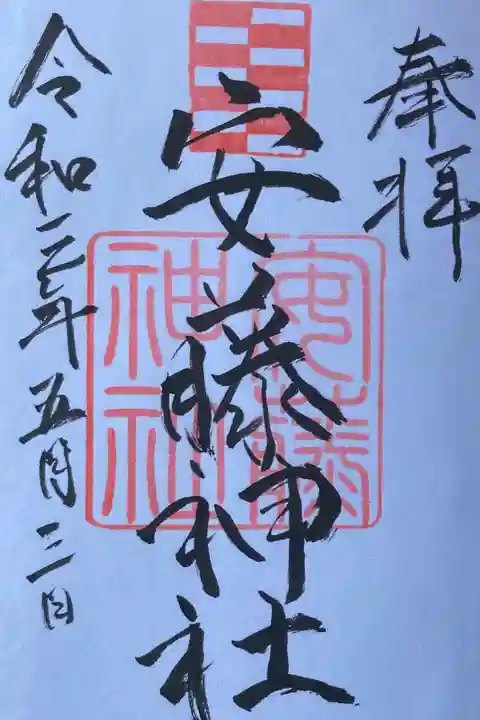 奉拝
安藤神社
安藤神社
令和三年五月三日